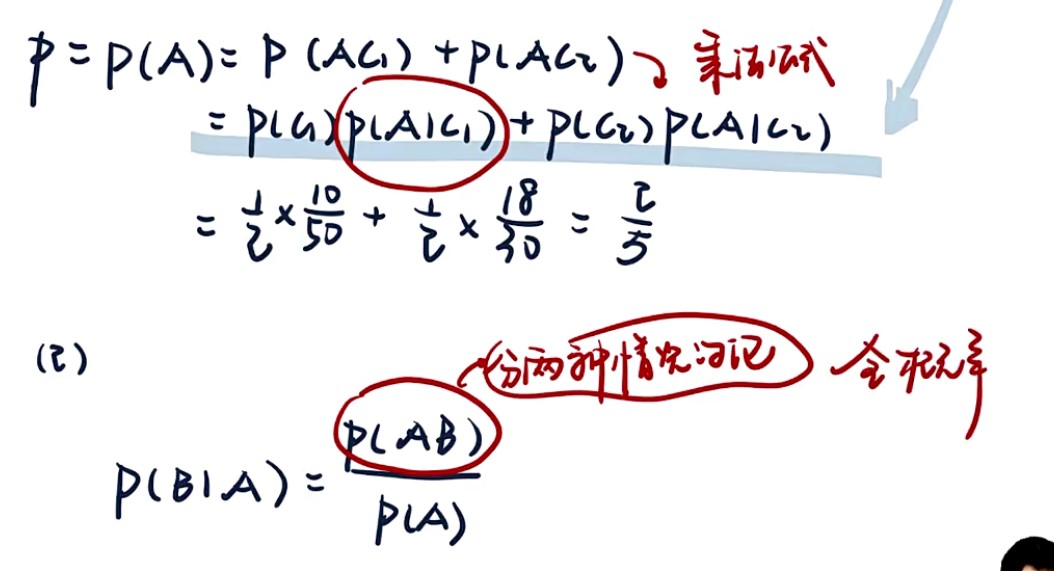 p = p(A) = p(AC₁) + p(AC₂) 乘法公式
= p(C₁) p(A|C₁) + p(C₂) p(A|C₂)
= 1/2 × 10/50 + 1/2 × 18/30 = 2/5
(2)
分两种情况讨论 全概率
p(B|A) = p(AB) / p(A)